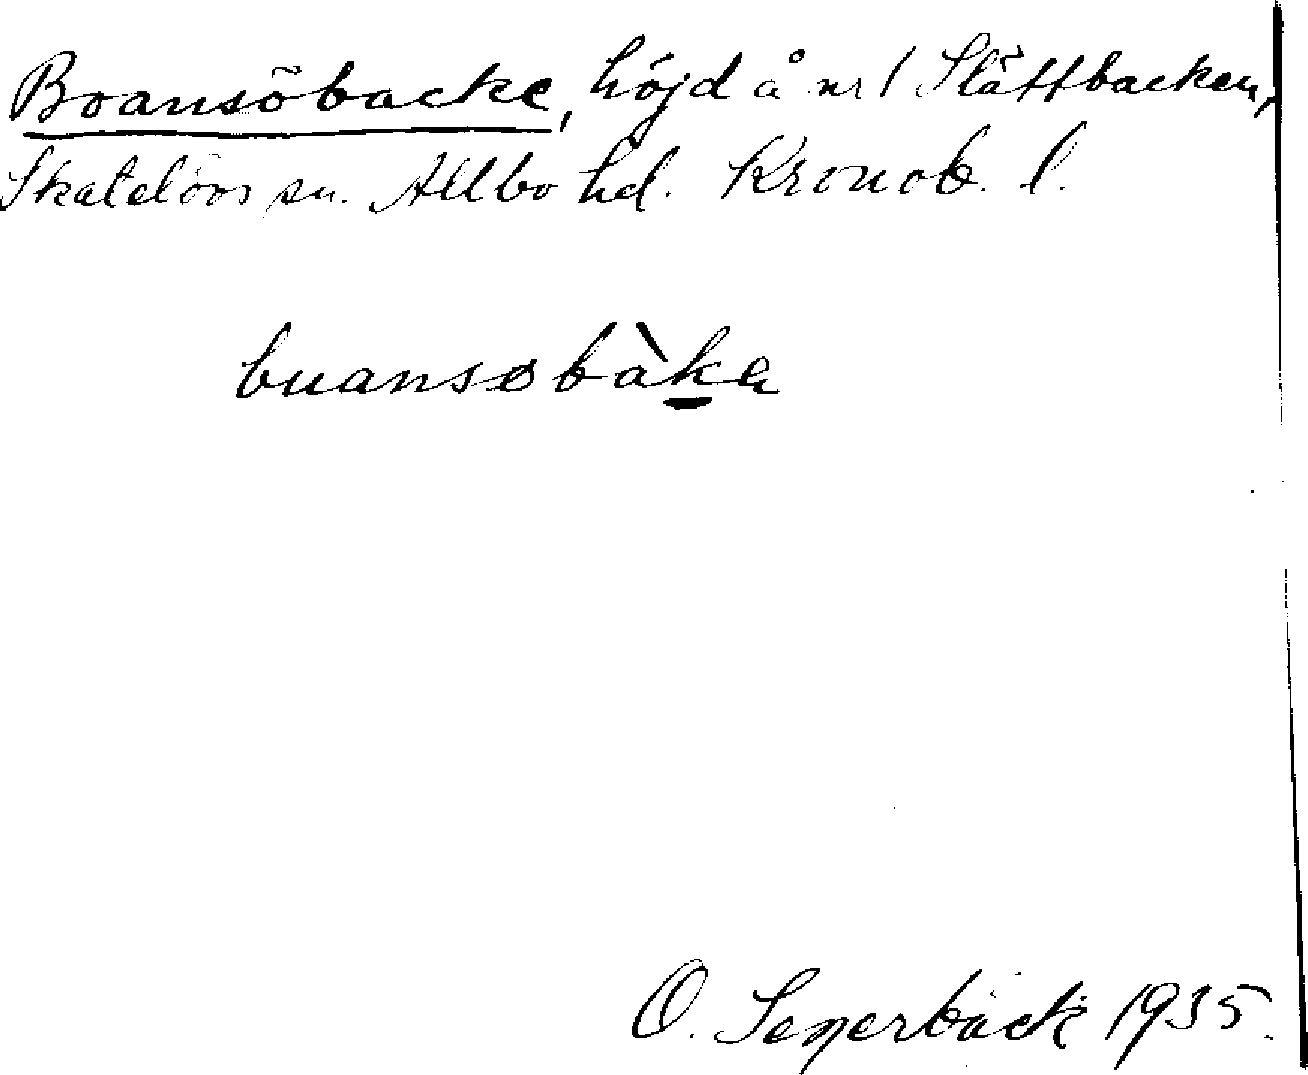 Boansöbacke, höjd å nr 1 Slättbacken,
Skatelövs sn. Allbo hd. Kronob. l.
buansobàka
O. Segerbäck 1935.